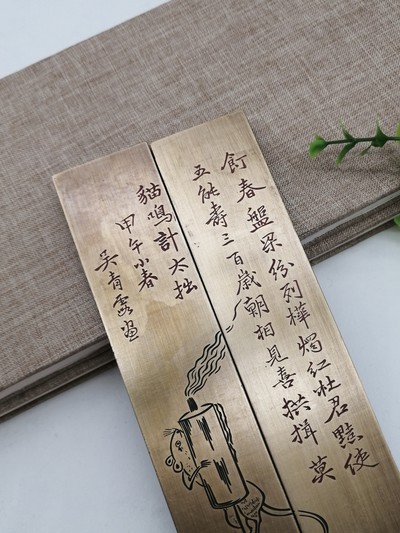 飣春盤粲紛列樺燭紅社君黠使
五能壽三百歲朝相見喜拱揖莫
貓鳴計太拙
甲午小春
吳青霞画